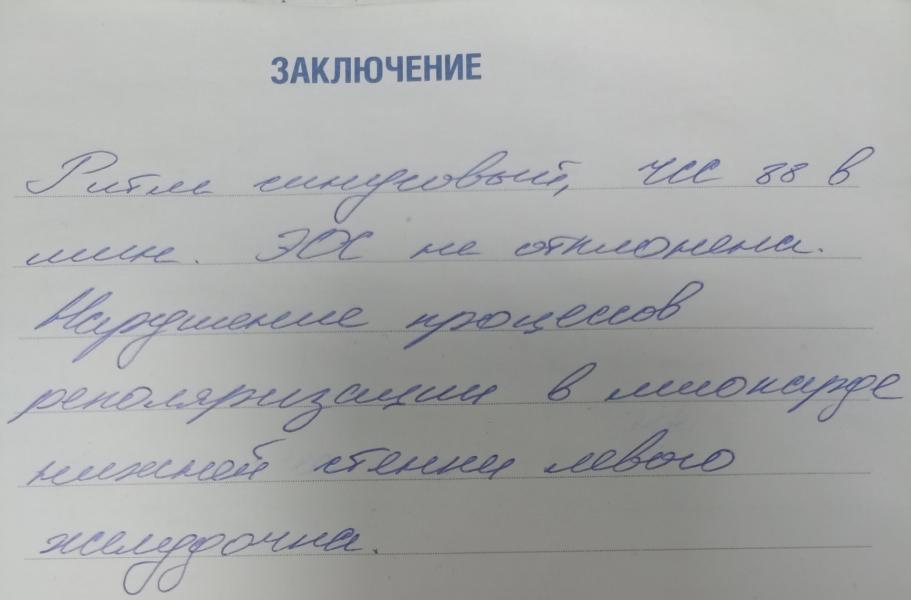 ЗАКЛЮЧЕНИЕ
Ритм синусовый, ЧСС 88 в
мин. ЭОС не отклонена.
Нарушение процессов
реполяризации в миокарде
нижней стенки левого
желудочка.